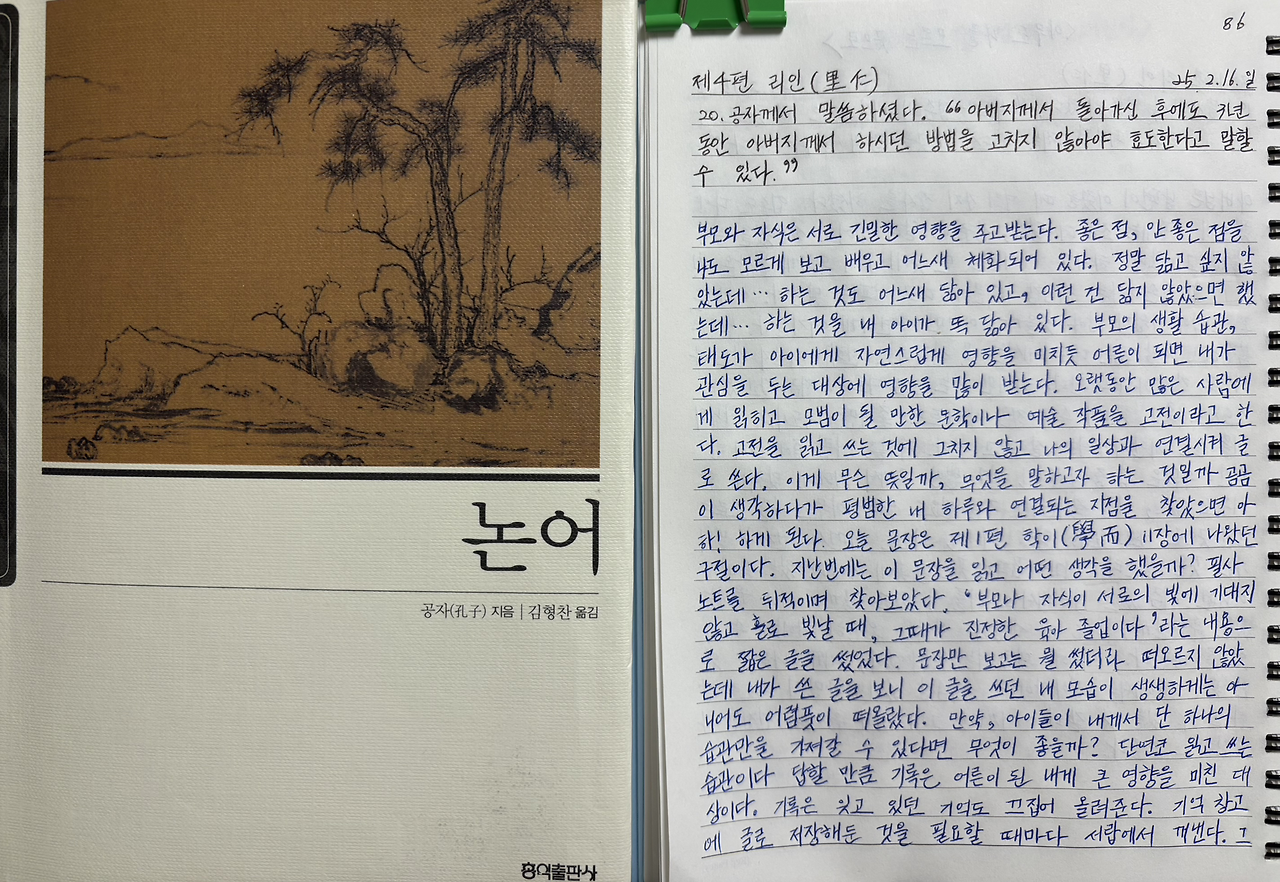 논어
공자(孔子) 지음 | 김형찬 옮김
홍익출판사
86
제4편 리인(里仁) 25. 2. 16. 일
20. 공자께서 말씀하셨다. “아버지께서 돌아가신 후에도 3년
동안 아버지께서 하시던 방법을 고치지 않아야 효도한다고 말할
수 있다.”
부모와 자식은 서로 긴밀한 영향을 주고받는다. 좋은 점, 안 좋은 점을
나도 모르게 보고 배우고 어느새 체화되어 있다. 정말 닮고 싶지 않
았는데… 하는 것도 어느새 닮아 있고, 이런 건 닮지 않았으면 했
는데… 하는 것을 내 아이가 똑 닮아 있다. 부모의 생활 습관,
태도가 아이에게 자연스럽게 영향을 미치듯 어른이 되면 내가
관심을 두는 대상에 영향을 많이 받는다. 오랫동안 많은 사람에
게 읽히고 모범이 될 만한 문학이나 예술 작품을 고전이라고 한
다. 고전을 읽고 쓰는 것에 그치지 않고 나의 일상과 연결시켜 글
로 쓴다. 이게 무슨 뜻일까, 무엇을 말하고자 하는 것일까 곰곰
이 생각하다가 평범한 내 하루와 연결되는 지점을 찾았으면 아
하! 하게 된다. 오늘 문장은 제1편 학이(學而) 11장에 나왔던
구절이다. 지난번에는 이 문장을 읽고 어떤 생각을 했을까? 필사
노트를 뒤적이며 찾아보았다. ‘부모나 자식이 서로의 빛에 기대지
않고 홀로 빛날 때, 그때가 진정한 육아 졸업이다’라는 내용으
로 짧은 글을 썼었다. 문장만 보고는 뭘 썼더라 떠오르지 않았
는데 내가 쓴 글을 보니 이 글을 쓰던 내 모습이 생생하게는 아
니어도 어렴풋이 떠올랐다. 만약, 아이들이 내게서 단 하나의
습관만을 가져갈 수 있다면 무엇이 좋을까? 단연코 읽고 쓰는
습관이다 답할 만큼 기록은 어른이 된 내게 큰 영향을 미친 대
상이다. 기록은 잊고 있던 기억도 끄집어 올려준다. 기억 창고
에 글로 저장해둔 것을 필요할 때마다 서랍에서 꺼낸다. 그